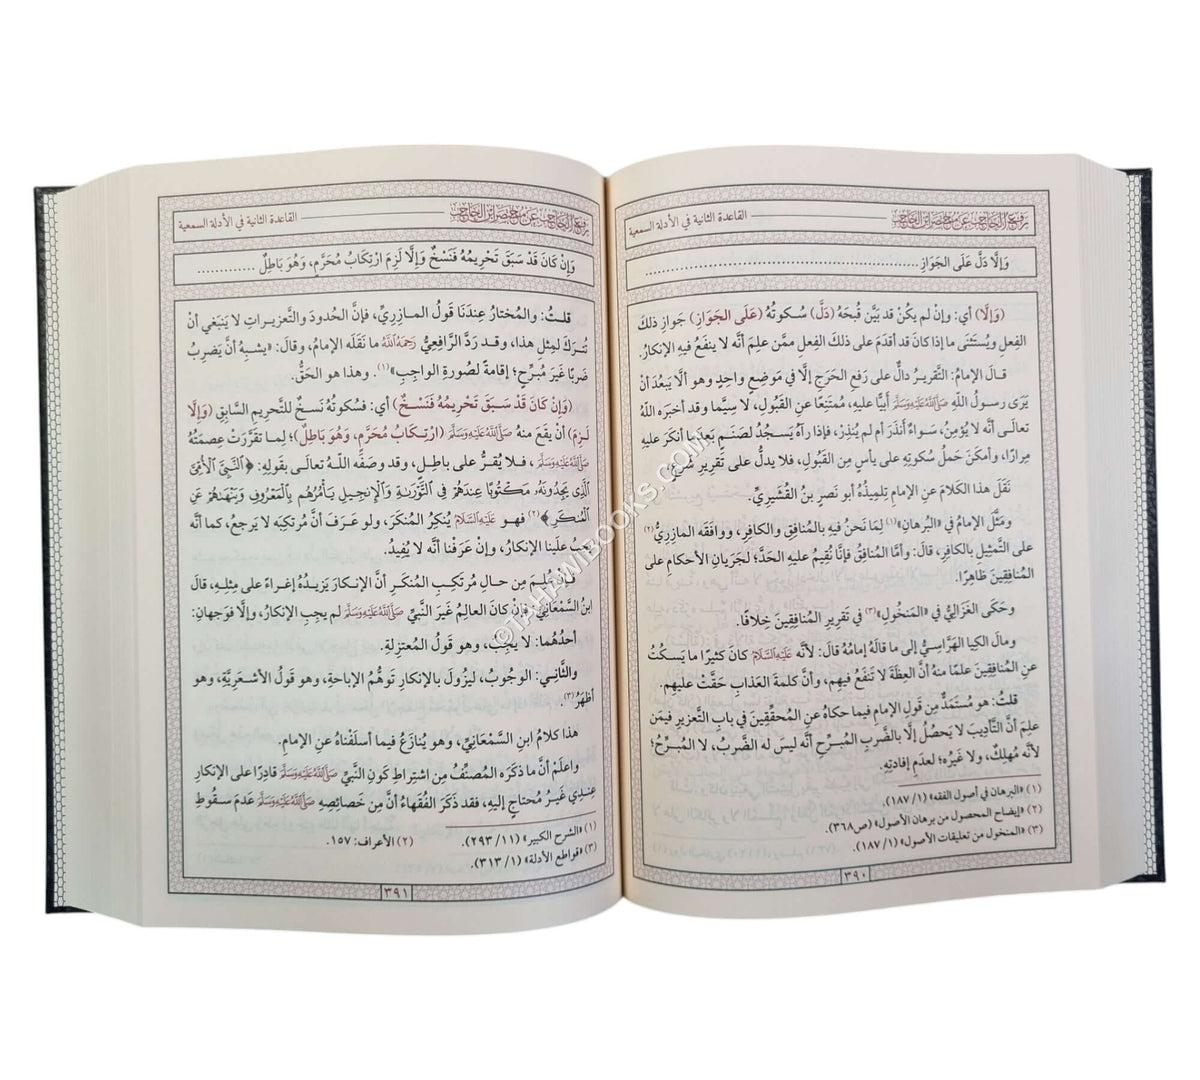 رفع الحاجب عن مختصر ابن الحاجب القاعدة الثانية في الأدلة السمعية
وَإِلَّا دَلَّ عَلَى الجَوَازِ
(وَإِلَّا) أي: وإن لم يكُنْ قد بيَّن قُبحَهُ (دَلَّ) سُكوتُهُ (عَلَى الجَوَازِ) جَوازِ ذلكَ
الفِعلِ ويُستَثنَى ما إذا كانَ قد أقدَمَ على ذلكَ الفِعلِ ممَّن عَلِمَ أنَّه لا ينفَعُ فيهِ الإنكارُ.
قالَ الإمامُ: التَّقريرُ دالٌّ على رَفعِ الحَرَجِ إلَّا في مَوضِعٍ واحِدٍ وهو ألَّا يَبعُدَ أنْ
يَرَى رسولُ اللَّهِ صَلَّى اللَّهُ عَلَيْهِ وَسَلَّمَ أبيًّا عليهِ، مُمتَنِعًا عنِ القَبولِ، لا سِيَّما وقد أخبَرَه اللَّهُ
تعالى أنَّه لا يُؤمِنُ، سَواءٌ أنذَرَ أم لم يُنذِرْ، فإذا رآهُ يَسجُدُ لصَنَمٍ بَعدَما أنكَرَ عليهِ
مِرارًا، وأمكَنَ حَملُ سُكوتِهِ على يأسٍ مِن القَبولِ، فلا يدلُّ على تَقريرِ شَرعٍ.
نَقَلَ هذا الكَلامَ عنِ الإمامِ تِلميذُهُ أبو نَصرِ بنُ القُشَيرِيِّ.
ومَثَّلَ الإمامُ في «البُرهانِ»(١) لِمَا نَحنُ فيهِ بالمُنافِقِ والكافِرِ، ووافَقَه المازِرِيُّ(٢)
على التَّمثيلِ بالكافِرِ، قالَ: وأمَّا المُنافِقُ فإنَّا نُقيمُ عليهِ الحَدَّ؛ لجَرَيانِ الأحكامِ على
المُنافِقينَ ظاهِرًا.
وحَكَى الغَزاليُّ في «المَنخُولِ»(٣) في تَقريرِ المُنافِقينَ خِلافًا.
ومالَ الكِيا الهَرَّاسِيُّ إلى ما قالَهُ إمامُهُ قالَ: لأنَّه عَلَيْهِ السَّلَامُ كانَ كَثيرًا ما يَسكُتُ
عنِ المُنافِقينَ عِلمًا منهُ أنَّ العِظَةَ لا تَنفَعُ فيهِم، وأنَّ كلمةَ العَذابِ حَقَّتْ عليهِم.
قلتُ: هو مُستَمَدٌّ مِن قَولِ الإمامِ فيما حكاهُ عنِ المُحقِّقينَ في بابِ التَّعزيرِ فيمَن
علِمَ أنَّ التَّأديبَ لا يَحصُلُ إلَّا بالضَّربِ المُبرِّحِ أنَّه ليسَ له الضَّربُ، لا المُبرِّحُ؛
لأنَّه مُهلِكٌ، ولا غَيرُه؛ لعدَمِ إفادتِهِ.
(١) «البرهان في أصول الفقه» (١/ ١٨٧).
(٢) «إيضاح المحصول من برهان الأصول» (ص٣٦٨).
(٣) «المنخول من تعليقات الأصول» (١/ ١٨٧).
٣٩٠
رفع الحاجب عن مختصر ابن الحاجب القاعدة الثانية في الأدلة السمعية
وَإِنْ كَانَ قَدْ سَبَقَ تَحْرِيمُهُ فَنَسْخٌ وَإِلَّا لَزِمَ ارْتِكَابُ مُحَرَّمٍ، وَهُوَ بَاطِلٌ
قلتُ: والمُختارُ عِندَنَا قَولُ المازِرِيِّ، فإنَّ الحُدودَ والتَّعزيراتِ لا يَنبَغي أنْ
تُترَكَ لمِثلِ هذا، وقد رَدَّ الرَّافِعيُّ رَحِمَهُ اللَّهُ ما نَقَلَه الإمامُ، وقالَ: «يشبِهُ أنْ يَضرِبُ
ضَربًا غَيرَ مُبرِّحٍ؛ إقامةً لصُورةِ الواجِبِ»(١). وهذا هو الحَقُّ.
(وَإِنْ كَانَ قَدْ سَبَقَ تَحْرِيمُهُ فَنَسْخٌ) أي: فسُكوتُهُ نَسخٌ للتَّحريمِ السَّابِقِ (وَإِلَّا
لَزِمَ) أنْ يقَعَ منهُ صَلَّى اللَّهُ عَلَيْهِ وَسَلَّمَ (ارْتِكَابُ مُحَرَّمٍ، وَهُوَ بَاطِلٌ)؛ لِما تقرَّرَتْ عِصمَتُهُ
صَلَّى اللَّهُ عَلَيْهِ وَسَلَّمَ، فلا يُقرُّ على باطِلٍ، وقد وصَفَه اللَّهُ تعالى بقَولِهِ: ﴿النَّبِيَّ الْأُمِّيَّ
الَّذِي يَجِدُونَهُ مَكْتُوبًا عِندَهُمْ فِي التَّوْرَاةِ وَالْإِنجِيلِ يَأْمُرُهُم بِالْمَعْرُوفِ وَيَنْهَاهُمْ عَنِ
الْمُنكَرِ﴾(٢) فهو عَلَيْهِ السَّلَامُ يُنكِرُ المُنكَرَ، ولو عَرَفَ أنَّ مُرتكِبَه لا يَرجِعُ، كما أنَّه
يَجِبُ علَينا الإنكارُ، وإنْ عَرَفْنا أنَّه لا يُفيدُ.
عُلِمَ مِن حالِ مُرتكِبِ المُنكَرِ أنَّ الإنكارَ يَزيدُهُ إغراءً على مِثلِهِ، قالَ
ابنُ السَّمْعَانِيِّ فإن كانَ العالِمُ غَيرَ النَّبِيِّ صَلَّى اللَّهُ عَلَيْهِ وَسَلَّمَ لم يجِبِ الإنكارُ، وإلَّا فوَجهانِ:
أحدُهُما: لا يجِبُ، وهو قَولُ المُعتزِلةِ.
والثَّاني: الوُجوبُ، ليزولَ بالإنكارِ تَوهُّمُ الإباحةِ، وهو قَولُ الأشعَريَّةِ، وهو
أظهَرُ(٣).
هذا كلامُ ابنِ السَّمْعَانِيِّ، وهو يُنازَعُ فيما أسلَفْناهُ عنِ الإمامِ.
واعلَمْ أنَّ ما ذكَرَه المُصنِّفُ مِن اشتِراطِ كَونِ النَّبيِّ صَلَّى اللَّهُ عَلَيْهِ وَسَلَّمَ قادِرًا على الإنكارِ
عِندِي غَيرُ مُحتاجٍ إليهِ، فقد ذكَرَ الفُقَهاءُ أنَّ مِن خَصائِصِهِ صَلَّى اللَّهُ عَلَيْهِ وَسَلَّمَ عَدَمَ سقُوطِ
(١) «الشرح الكبير» (١١/ ٢٩٣). (٢) الأعراف: ١٥٧.
(٣) «قواطع الأدلة» (١/ ٣١٣).
٣٩١
©TAHAWIBOOKS.COM